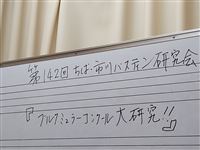 第142回ちば・市川バスティン研究会
『ブルグミュラーコンクール大研究!!』